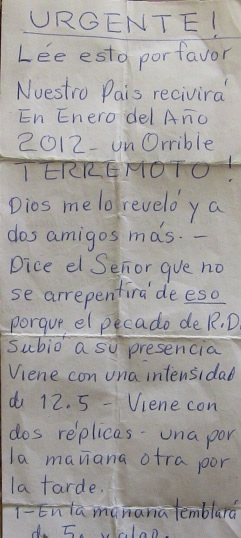 URGENTE!
Lée esto por favor
Nuestro Pais recivirá
En Enero del Año
2012- un Orrible
TERREMOTO!
Dios me lo reveló y a
dos amigos más. -
Dice el Señor que no
se arrepentirá de eso
porque el pecado de R.D.
Subió a su presencia
Viene con una intensidad
de 12.5 - Viene con
dos réplicas - una por
la mañana otra por
la tarde.
1-En la mañana temblará
de 5